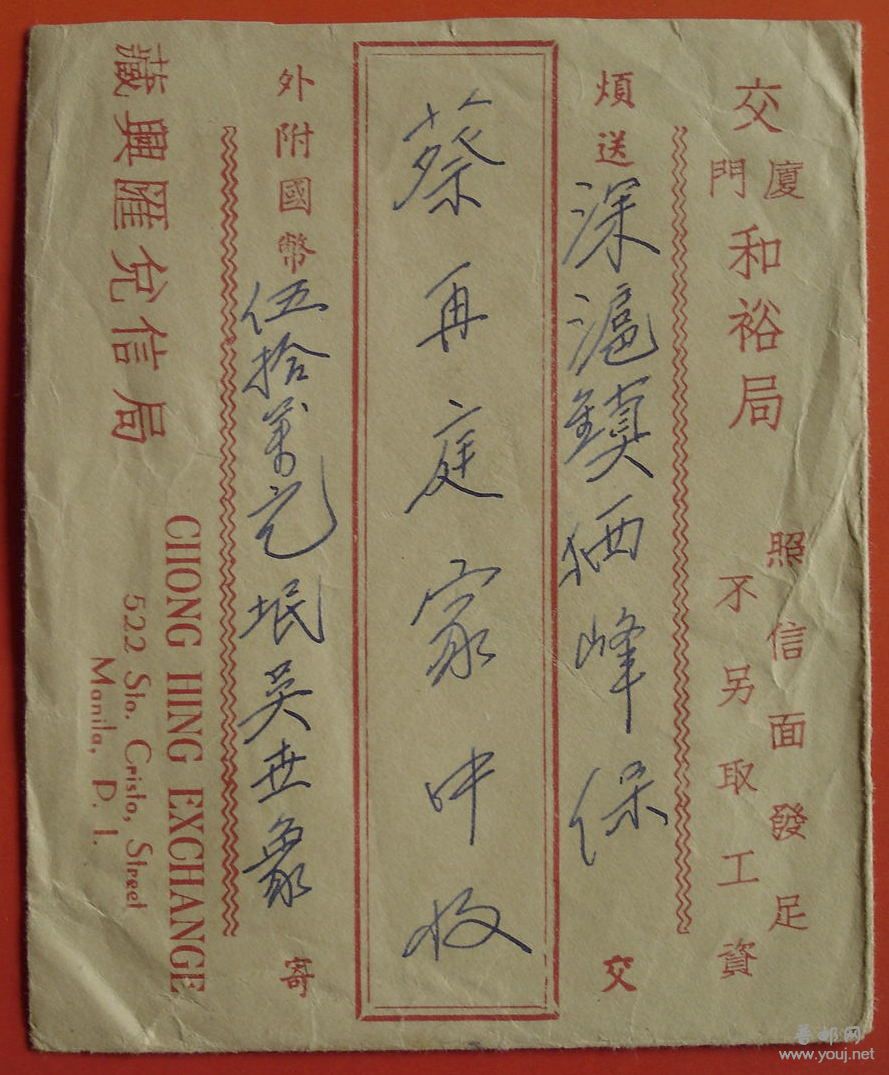 交廈門和裕局
照信面發足
不另取工資
煩送深滬鎮獅峰保交
蔡再庭家中收
外附國幣伍拾萬元垊吳世象寄
CHONG HING EXCHANGE
522 Sto. Cristo, Street
Manila, P. I.
藏興匯兌信局
普邮网
www.youj.net